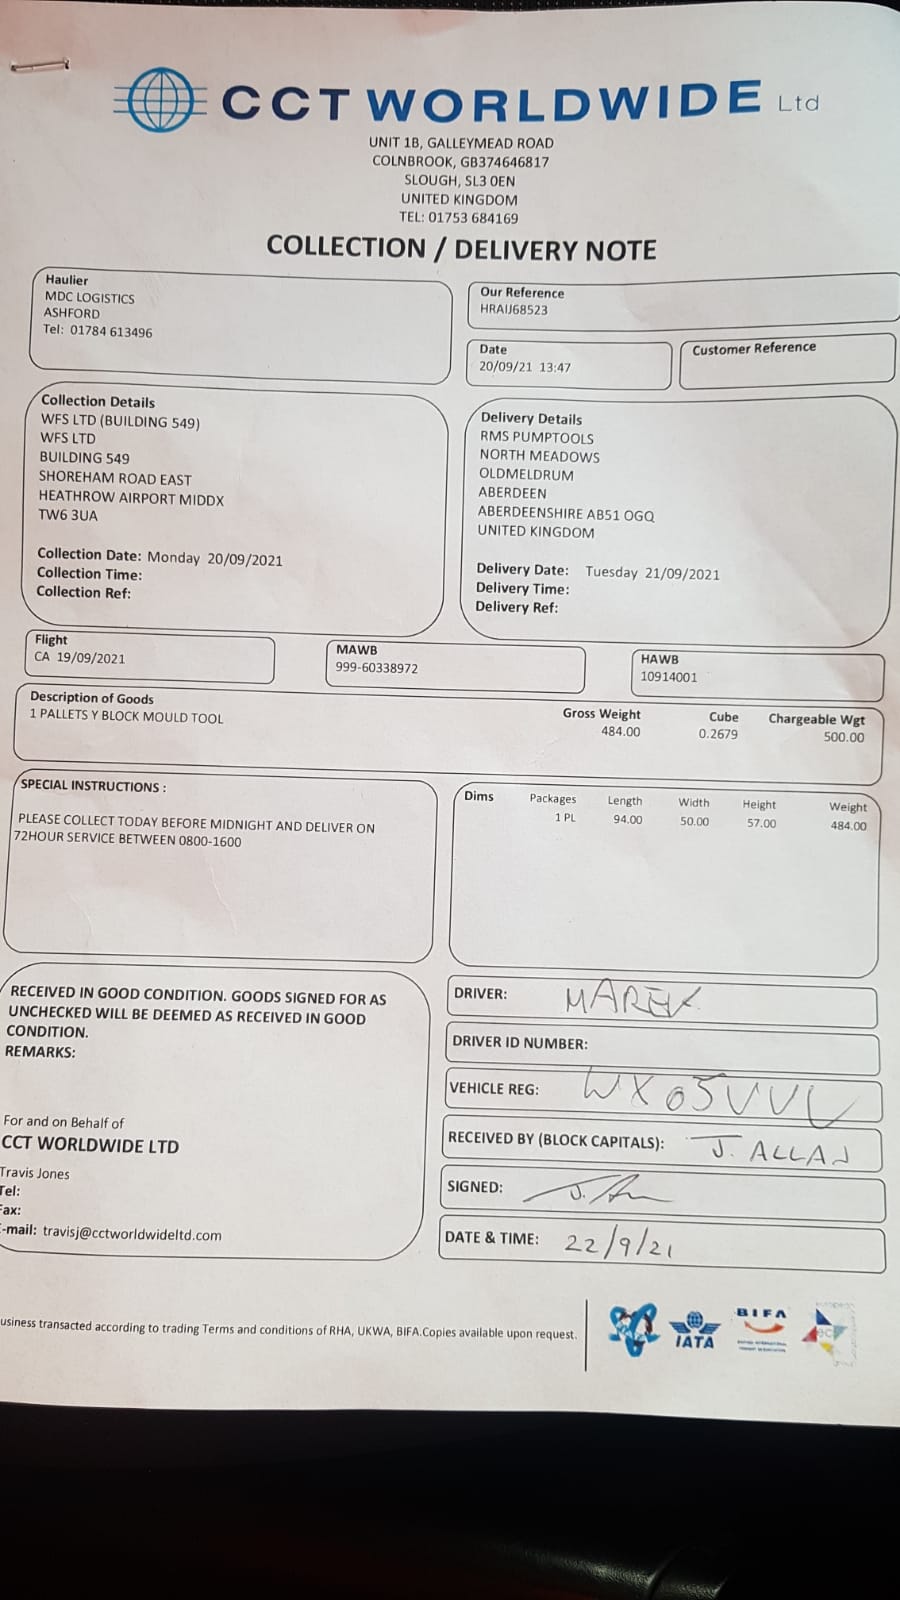 CCT WORLDWIDE Ltd
UNIT 1B, GALLEYMEAD ROAD
COLNBROOK, GB374646817
SLOUGH, SL3 0EN
UNITED KINGDOM
TEL: 01753 684169
COLLECTION / DELIVERY NOTE
Haulier
MDC LOGISTICS
ASHFORD
Tel: 01784 613496
Our Reference
HRAIJ68523
Date
20/09/21 13:47
Customer Reference
Collection Details
WFS LTD (BUILDING 549)
WFS LTD
BUILDING 549
SHOREHAM ROAD EAST
HEATHROW AIRPORT MIDDX
TW6 3UA
Collection Date: Monday 20/09/2021
Collection Time:
Collection Ref:
Delivery Details
RMS PUMPTOOLS
NORTH MEADOWS
OLDMELDRUM
ABERDEEN
ABERDEENSHIRE AB51 OGQ
UNITED KINGDOM
Delivery Date: Tuesday 21/09/2021
Delivery Time:
Delivery Ref:
Flight
CA 19/09/2021
MAWB
999-60338972
HAWB
10914001
Description of Goods
1 PALLETS Y BLOCK MOULD TOOL
Gross Weight Cube Chargeable Wgt
484.00 0.2679 500.00
SPECIAL INSTRUCTIONS :
PLEASE COLLECT TODAY BEFORE MIDNIGHT AND DELIVER ON
72HOUR SERVICE BETWEEN 0800-1600
Dims Packages Length Width Height Weight
1 PL 94.00 50.00 57.00 484.00
RECEIVED IN GOOD CONDITION. GOODS SIGNED FOR AS
UNCHECKED WILL BE DEEMED AS RECEIVED IN GOOD
CONDITION.
REMARKS:
For and on Behalf of
CCT WORLDWIDE LTD
Travis Jones
Tel:
Fax:
E-mail: travisj@cctworldwideltd.com
DRIVER: MAREK
DRIVER ID NUMBER:
VEHICLE REG: WX05VVL
RECEIVED BY (BLOCK CAPITALS): J. ALLAN
SIGNED:
DATE & TIME: 22/9/21
usiness transacted according to trading Terms and conditions of RHA, UKWA, BIFA.Copies available upon request.
IATA
BIFA